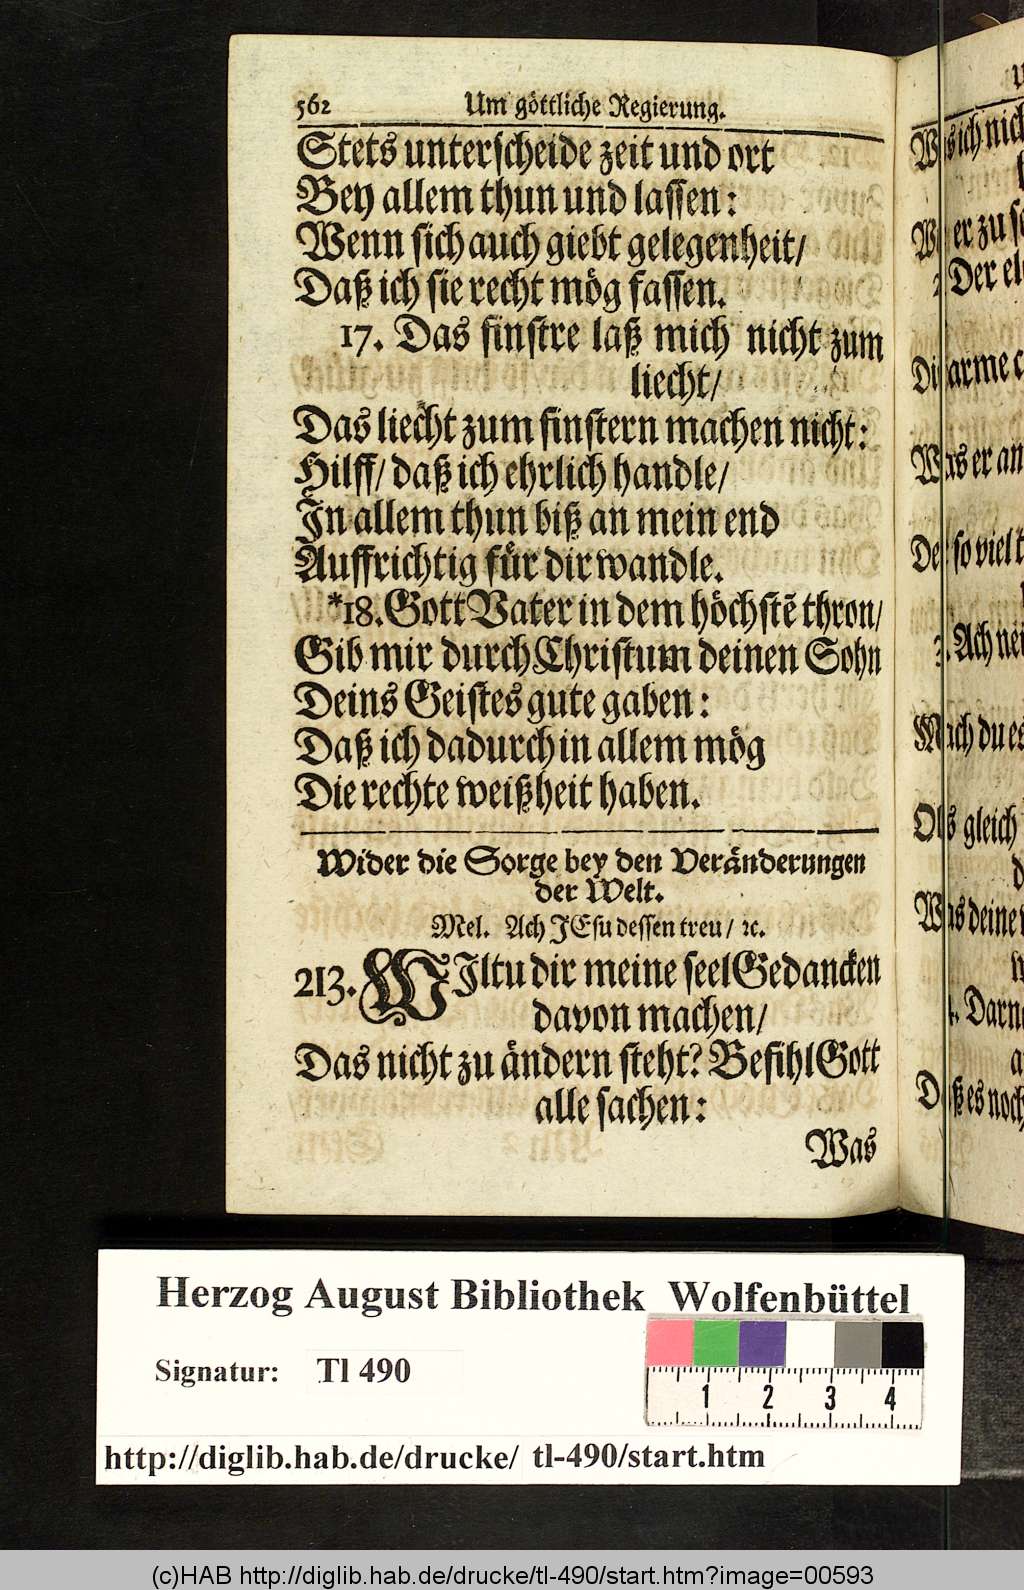 562 Um göttliche Regierung.
Stets unterscheide zeit und ort
Bey allem thun und lassen:
Wenn sich auch giebt gelegenheit/
Daß ich sie recht mög fassen.
17. Das finstre laß mich nicht zum
liecht/
Das liecht zum finstern machen nicht:
Hilff/ daß ich ehrlich handle/
In allem thun biß an mein end
Auffrichtig für dir wandle.
*18. Gott Vater in dem höchstē thron/
Gib mir durch Christum deinen Sohn
Deins Geistes gute gaben:
Daß ich dadurch in allem mög
Die rechte weißheit haben.
Wider die Sorge bey den Veränderungen
der Welt.
Mel. Ach JEsu dessen treu/ ꝛc.
213. WIltu dir meine seel Gedancken
davon machen/
Das nicht zu ändern steht? Befihl Gott
alle sachen:
Was
Herzog August Bibliothek Wolfenbüttel
Signatur: Tl 490
1 2 3 4
http://diglib.hab.de/drucke/ tl-490/start.htm
(c)HAB http://diglib.hab.de/drucke/tl-490/start.htm?image=00593